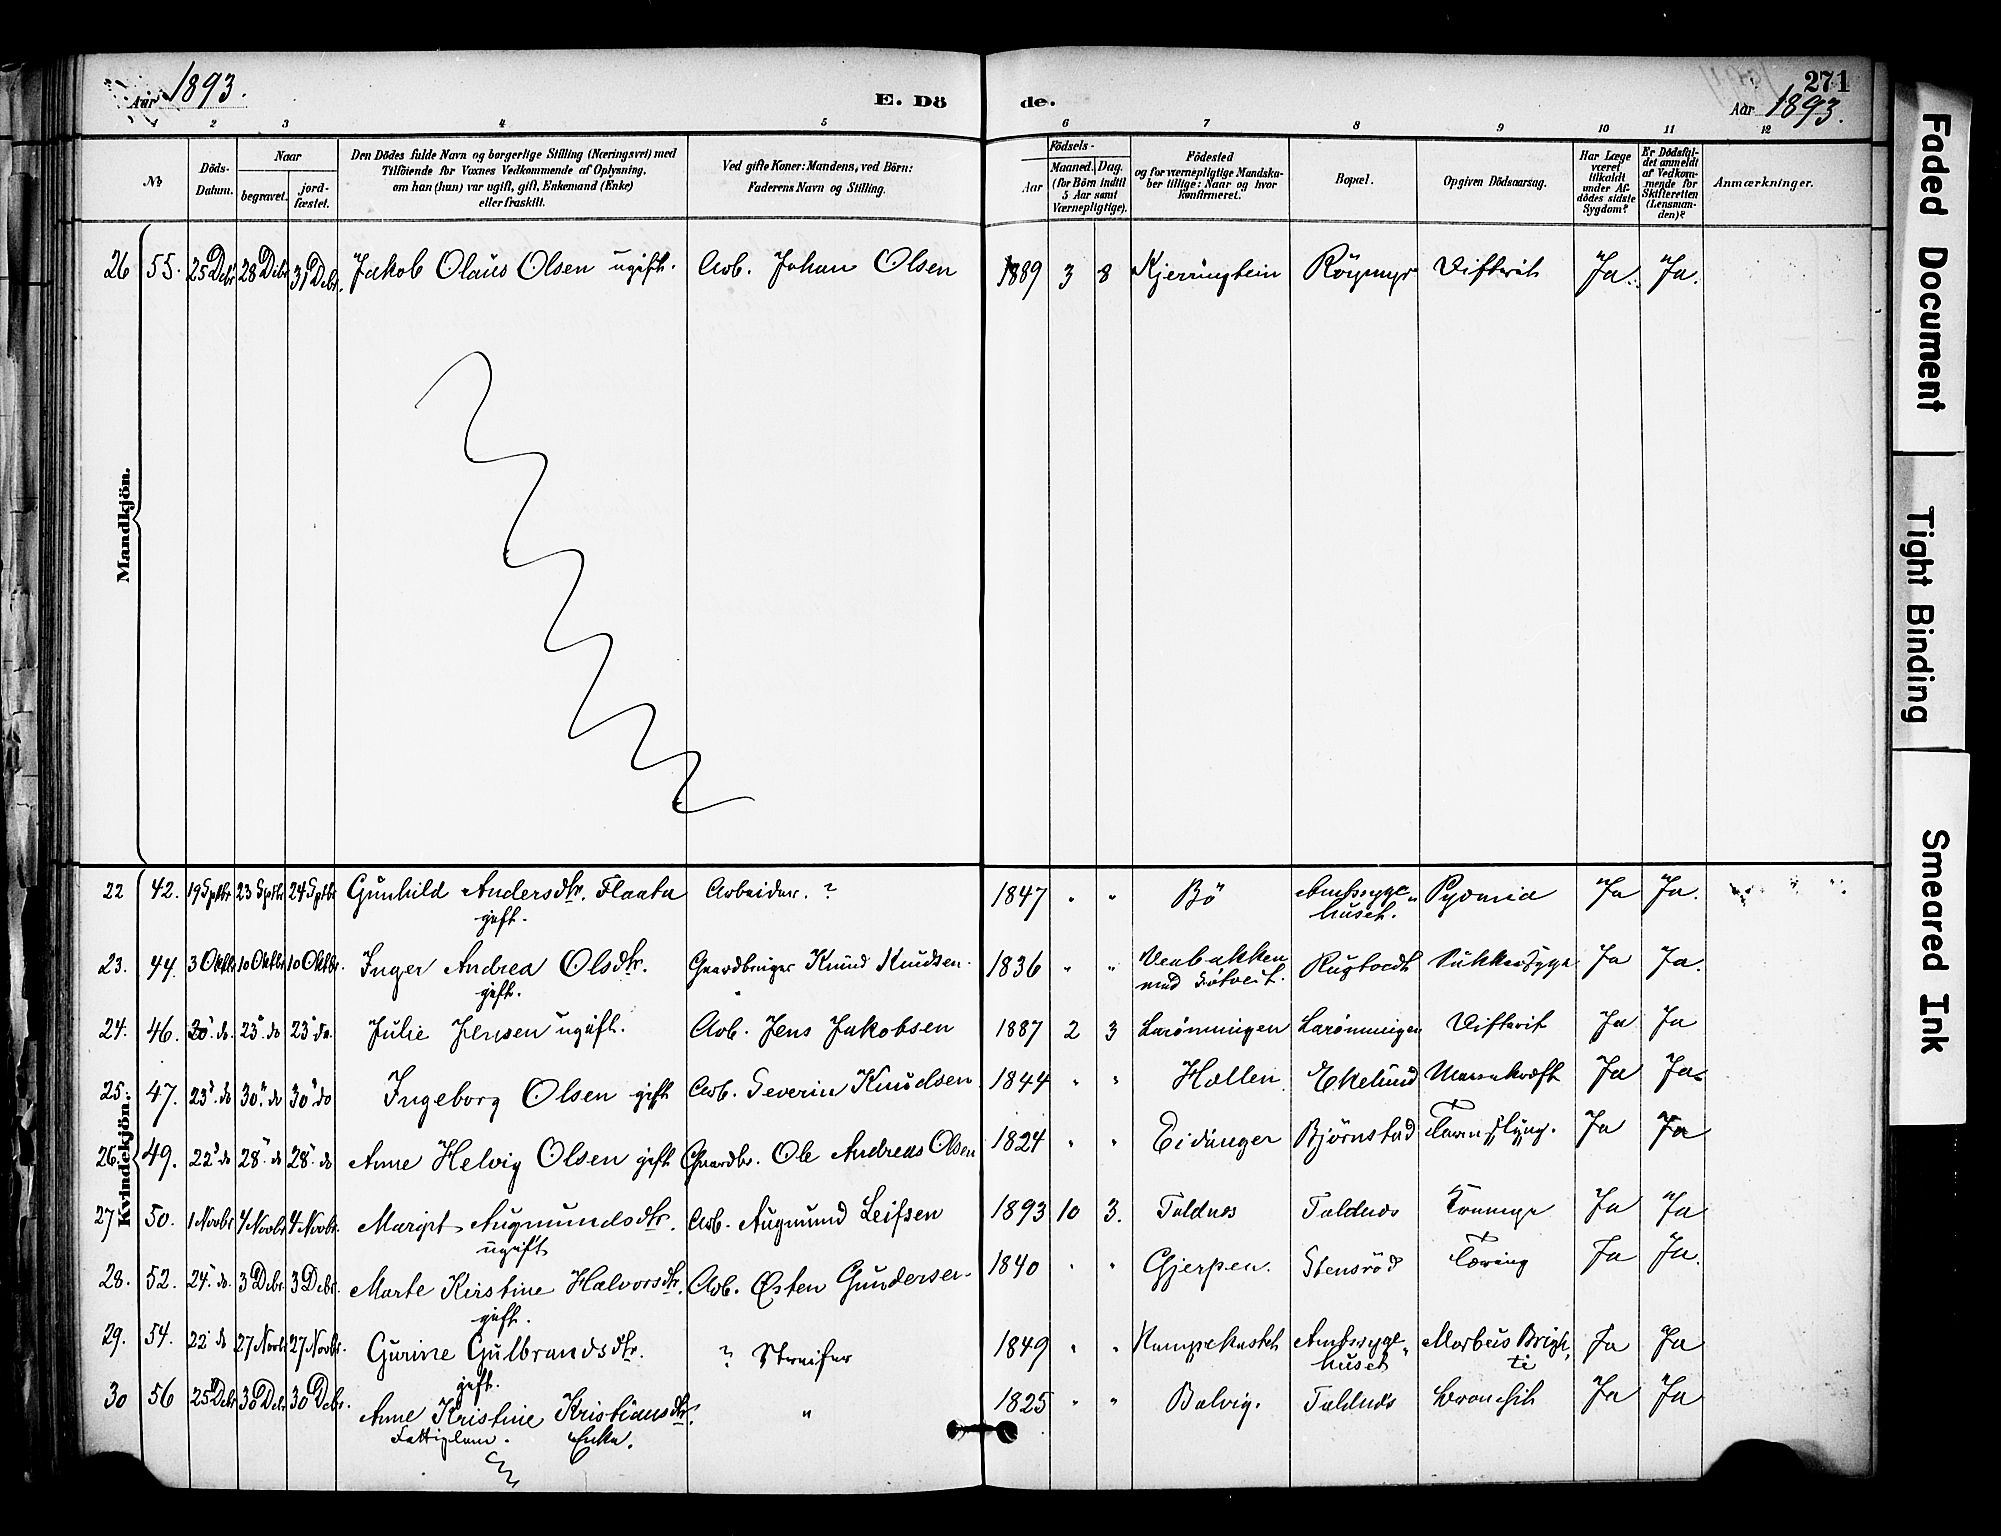 Aar 1893.
E. Dö
de.
271
Aar 1893.
1 2 3 4 5 6 7 8 9 10 11 12
№
Döds-Datum.
Naar
begravet.
jord-fæstet.
Den Dödes fulde Navn og borgerlige Stilling (Næringsvei) med
Tilföiende for Voxnes Vedkommende af Oplysning,
om han (hun) var ugift, gift, Enkemand (Enke)
eller fraskilt.
Ved gifte Koner: Mandens, ved Börn:
Faderens Navn og Stilling.
Födsels-
Aar
Maaned. Dag.
(for Börn indtil
5 Aar samt
Værnepligtige).
Födested
og for værnepligtige Mandska-
ber tillige: Naar og hvor
konfirmeret.
Bopæl.
Opgiven Dödsaarsag.
Har Læge
været
tilkaldt
under Af-
dödes sidste
Sygdom?
Er Dödsfal-
det anmeldt
af Vedkom-
mende for
Skifteretten
(Lensman-
den)?
Anmærkninger.
Mandkjön.
26 55. 25 Debr 28 Debr 31 Debr. Jakob Olaus Olsen ugift. Arb. Johan Olsen 1889 3 8 Kjerringtein Röymyr Difterit Ja. Ja.
Kvindekjön.
22 42. 19 Sptbr 23 Sptbr 24 Sptbr Gunhild Andersdtr. Flaata Arbeider. ? 1847 " " Bö Amtssyge- Pyæmia Ja Ja.
gift. huset.
23. 44. 3 Oktbr 10 Oktbr 10 Oktbr. Inger Andrea Olsdtr. Gaardbruger Knud Knudsen. 1836 " " Venbakken Rugtvedt Sukkersyge Ja Ja.
gift. und
24. 46. 20. do. 23. do 23. do Julie Jensen ugift. Arb. Jens Jakobsen 1887 2 3 Larönningen Larönningen Difterit Ja Ja
25. 47. 23. do 30. do 30. do Ingeborg Olsen gift Arb. Severin Knudsen 1844 " " Hollen Ekelund Mavekræft Ja Ja
26. 49. 22. do 28. do 28. do Anne Helvig Olsen gift Gaardbr. Ole Andreas Olsen 1824 " " Eidanger Björnstad Ja Ja
27 50. 1 Novbr 4 Novbr 4 Novbr. Margit Augmundsdtr. Arb. Augmund Leifsen 1893 10 3. Taldnes Taldnes Ja Ja
ugift
28. 52. 24. do. 3 Debr. 3 Debr. Marte Kirstine Halvorsdtr. Arb. Østen Gundersen. 1840 " " Gjerpen. Stensröd Tæring Ja Ja.
gift.
29. 54. 22 do 27 Novbr 27 Novbr. Gurine Gulbrandsdtr. ? Streifer 1849 " " Kampekastet Amtssyge- Morbus Brigh- Ja Ja
gift. huset ti
30 56 25 Debr 30 Debr 30 Debr. Anne Kristine Kristiansdtr. " 1825 " " Bolvig. Taldnes Bronchit Ja Ja
Fattiglem. Enke.
Faded Document
Tight Binding
Smeared Ink